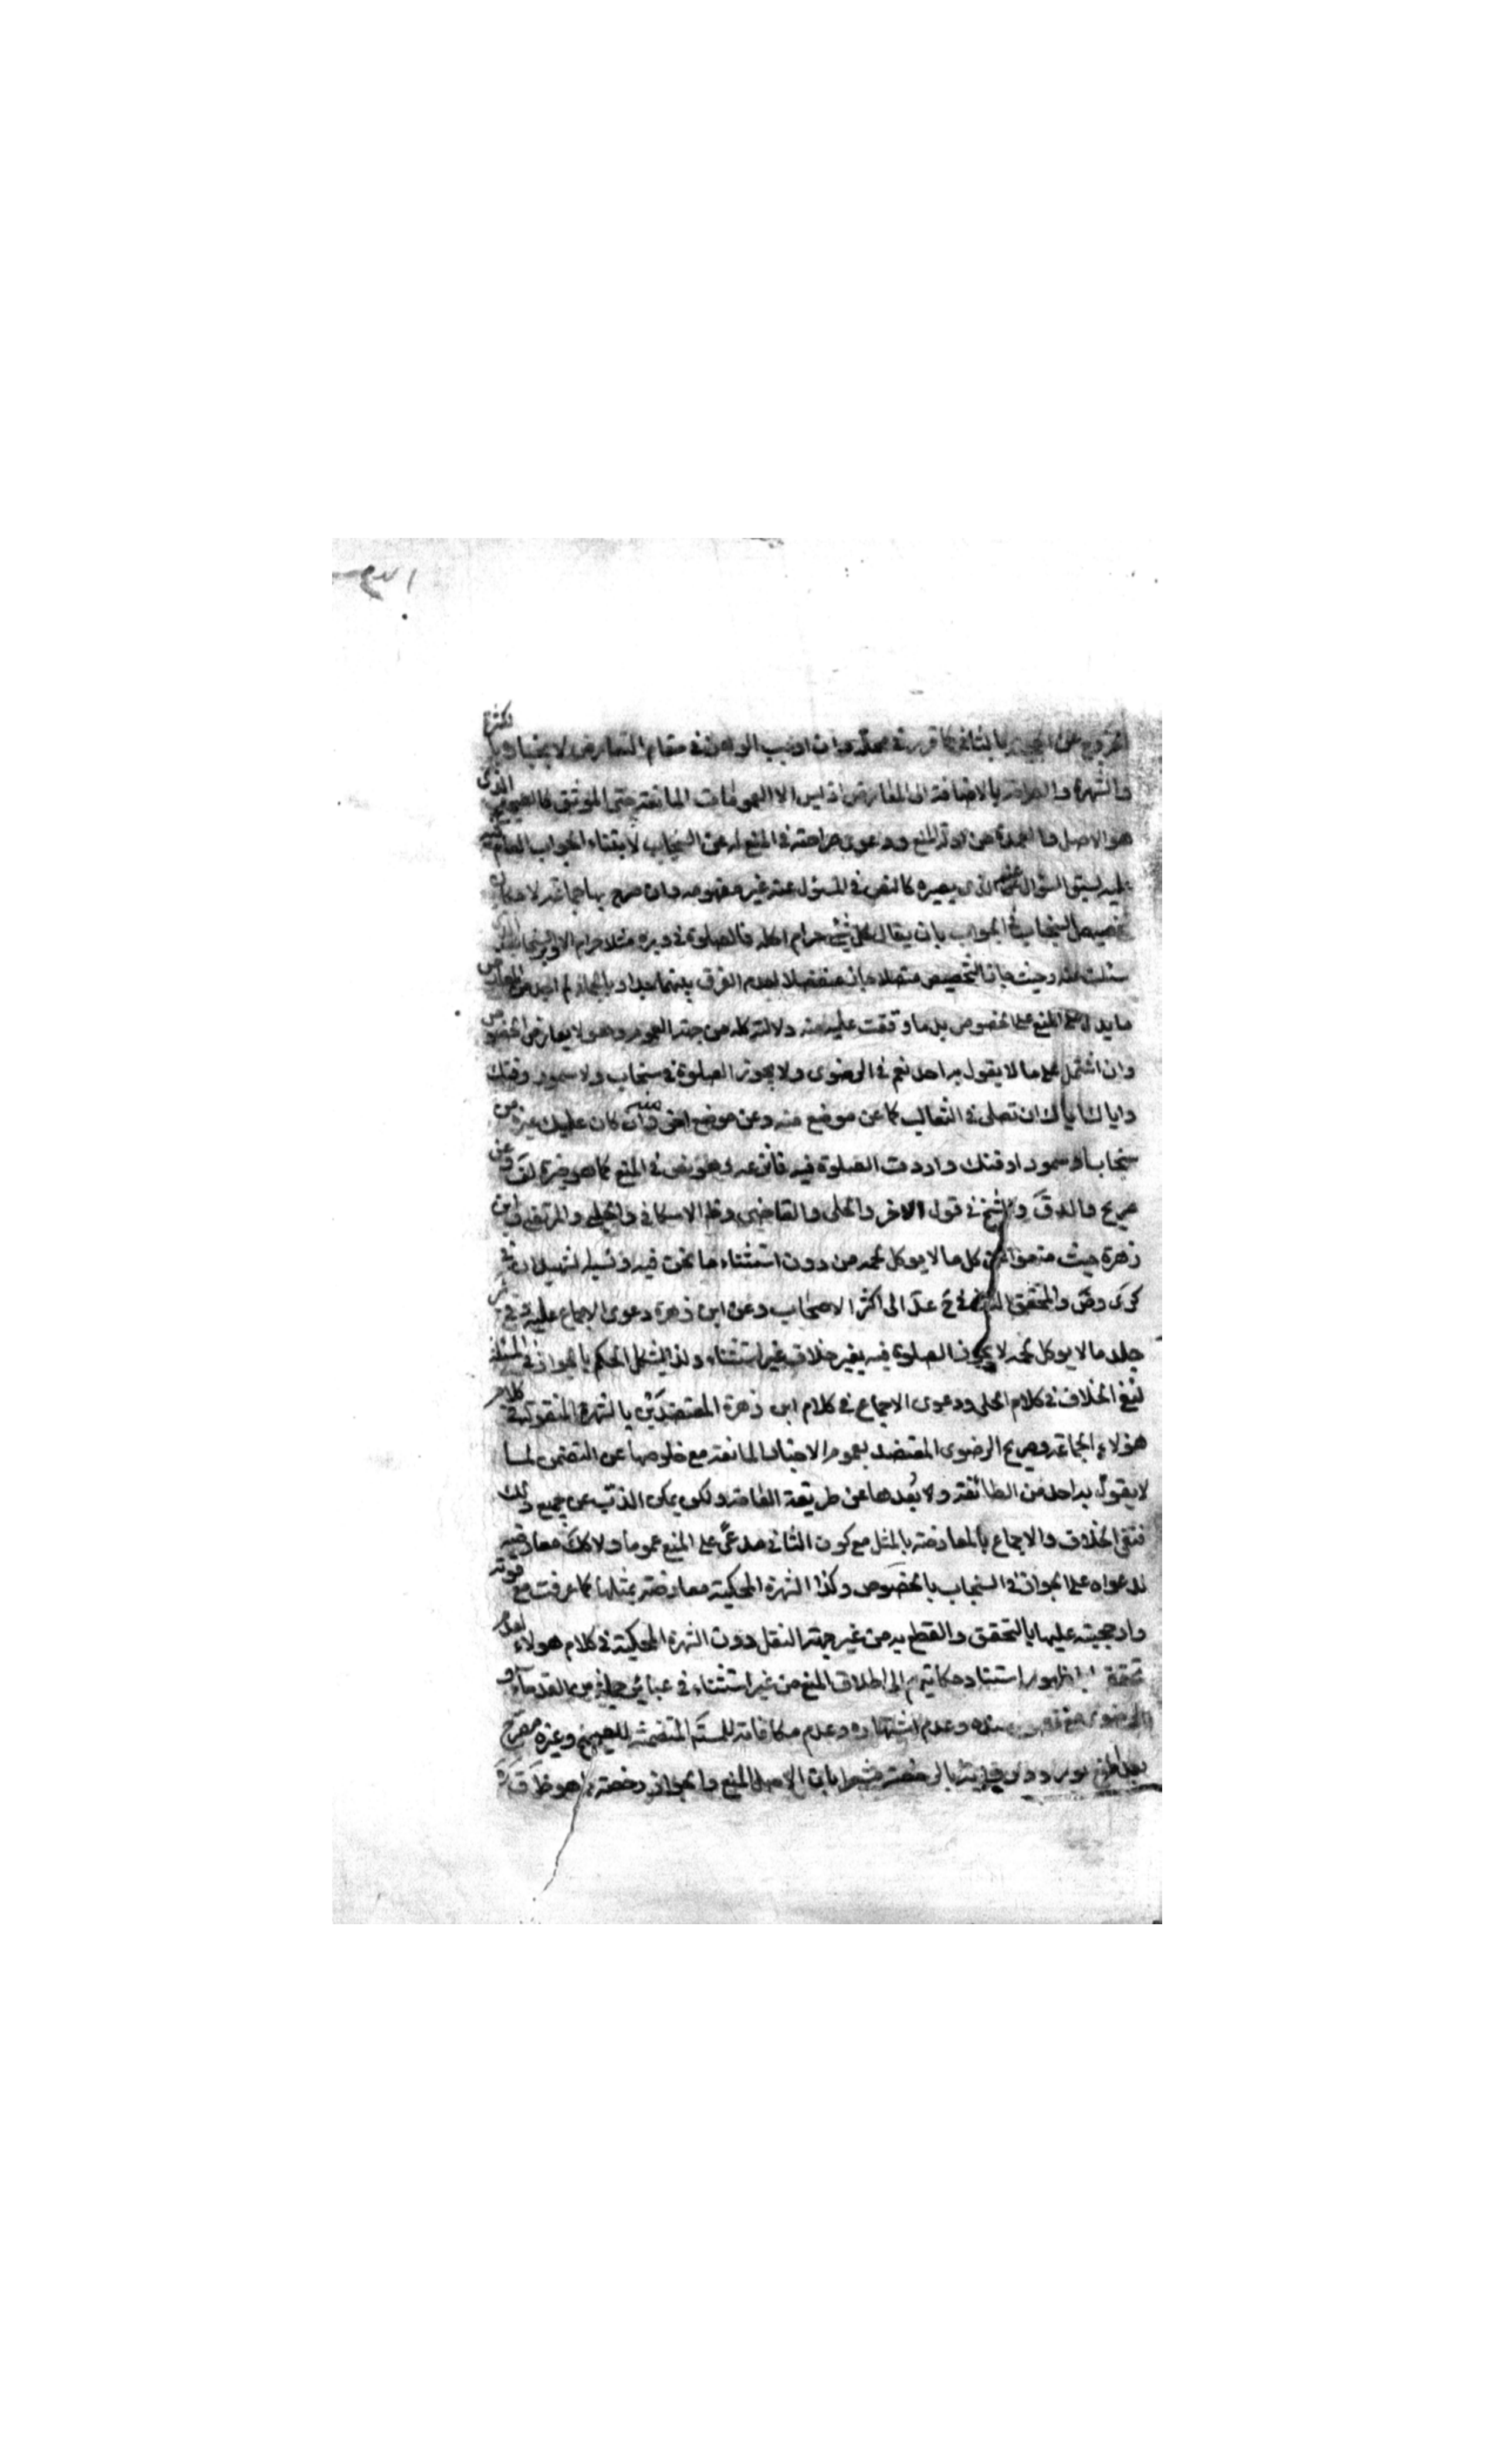 الخروج عن الحجة بالثاني كما قرر في محله وان اوجب الوهن في مقام التعارض لانجباره بكثرة
والشهرة والصراحة بالاضافة الى المعارض اذ ليس الا العمومات المانعة حتى الموثق كالصحيح الذى
هو الاصل والعمدة من ادلة المنع ودعوى صراحته في المنع له عن السنجاب لابتناء الجواب العام فيه
عليه لسبق السؤال عنه الذى يصيره كالنص في المسئول عنه غير مفهومه وان صرح بها جماعة لامكان
تخصيص السنجاب في الجواب بان يقال كل شئ حرام اكله فالصلوة في وبره مثلا حرام الا وبر السنجاب الذى
سئلت عنه وحيث جاز التخصيص متصلا جاز منفصلا لعدم الفرق بينهما جدا وبالجملة لم اجد من المعارض
ما يدل على المنع على الخصوص بل ما وقفت عليه منه دلالته كله من جهة العموم وهو لا يعارض الخصوص
وان اشتمل على ما لا يقول به احد نعم في الرضوى ولا يجوز الصلوة في سنجاب ولا سمور وفنك
واياك اياك ان تصلى في الثعالب كما عن موضع منه وعن موضع اخر منه وان كان عليك غيره من
سنجاب او سمور او فنك واردت الصلوة فيه فانزعه وهو نص في المنع كما هو خيرة لف وعن
صريح والدق والشيخ في قول الاخر والحلى والقاضى وظ الاسكافى والحلبى والمرتضى وابن
زهرة حيث منعوا عن كل ما لا يوكل لحمه من دون استثناء ما نحن فيه ونسبه الشهيدان في
كرى وض والمحقق الثاني في ح عد الى اكثر الاصحاب وعن ابن زهرة دعوى الاجماع عليه وفى ئر
جلد ما لا يوكل لحمه لا يجوز الصلوة فيه بغير خلاف غير استثناء ولذا يشكل الحكم بالجواز في المسئلة
لنفى الخلاف في كلام الحلى ودعوى الاجماع في كلام ابن زهرة المعتضدين بالشهرة المنقولة في كلام
هؤلاء الجماعة وصريح الرضوى المعتضد بعموم الاخبار المانعة مع خلوصها عن التضمن لما
لا يقول به احد من الطائفة ولا بعدها عن طريقة العامة ولكن يمكن الذب عن جميع ذلك
فنفى الخلاف والاجماع بالمعارضة بالمثل مع كون الثاني مدعى على المنع عموما ولا كك معارضه
لدعواه على الجواز في السنجاب بالخصوص وكذا الشهرة المحكية معارضة بمثلها كما عرفت مع قوته
وارجحيته عليها بالتحقق والقطع به من غير جهة النقل دون الشهرة المحكية في كلام هولاء لعدم
تحققها لظهور استناد حكايتهم الى اطلاق المنع من غير استثناء في عبائر جملة من القدماء و
الرضوى مع قصور سنده وعدم اشتهاره وعدم مكافاته للمستفيضة المتضمنة للصحيح وغيره مصرح
بعد المنع بورود رواية بالرخصة مشعرا بان الاصل المنع والجواز رخصة